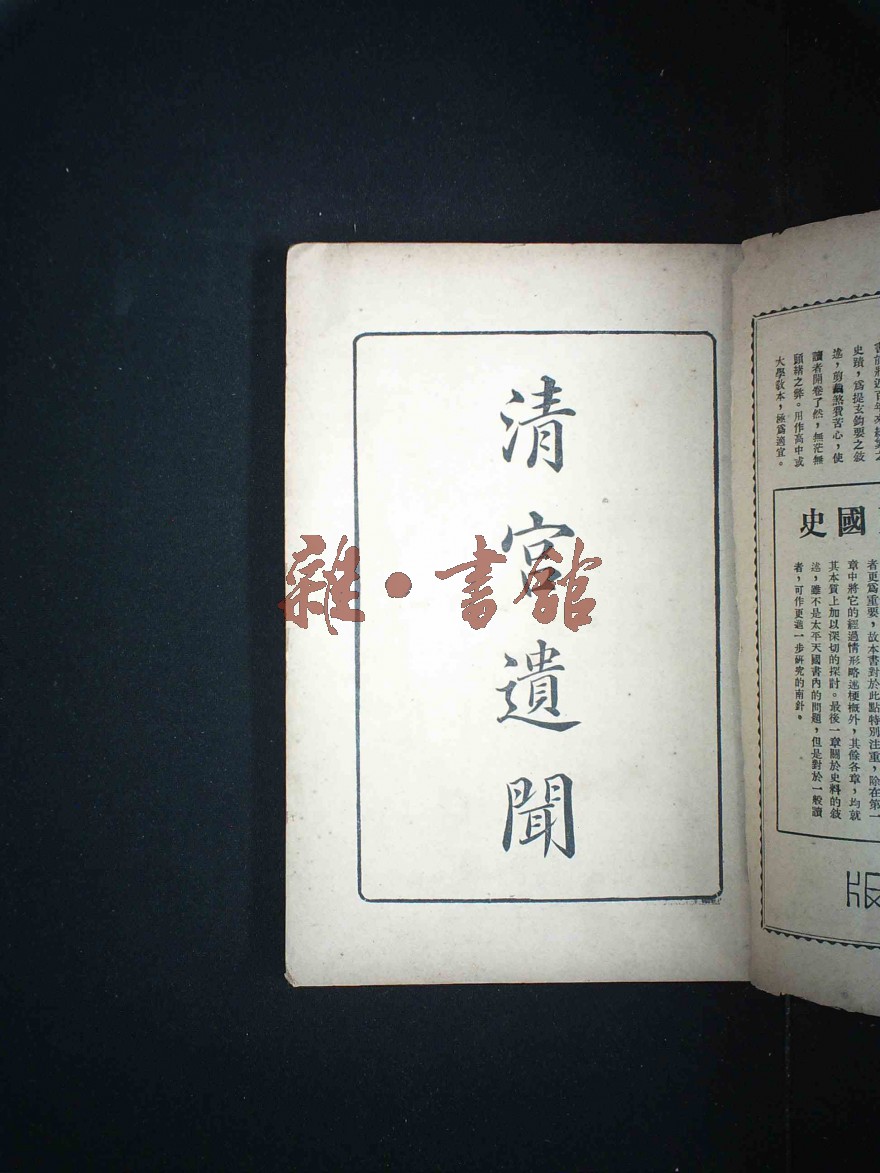 清宮遺聞
雜•書館
史蹟，爲提玄鈎要之敍
述，剪繭煞費苦心，使
讀者開卷了然，無茫無
頭緒之弊。用作高中或
大學敎本，極爲適宜。
國史
者更爲重要，故本書對於此點特別注重，除在第一
章中將它的經過情形略述梗概外，其餘各章，均就
其本質上加以深切的探討。最後一章關於史料的敍
述，雖不是太平天國書內的問題，但是對於一般讀
者，可作更進一步研究的南針。